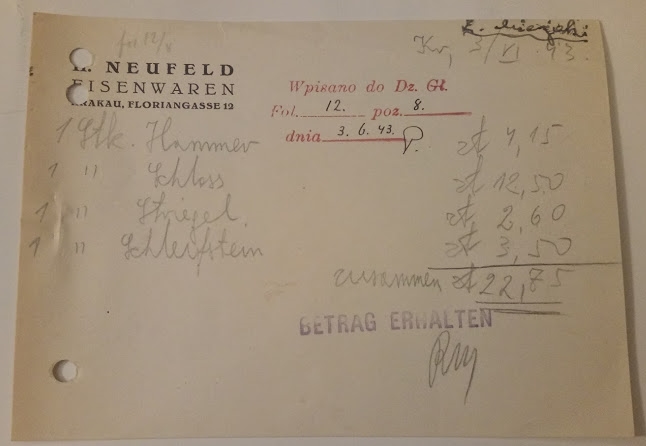 fol 12/8
L. NEUFELD
EISENWAREN
KRAKAU, FLORIANGASSE 12
Kr, 3/VI 43.
Wpisano do Dz. Gł.
Fol. 12. poz. 8.
dnia 3. 6. 43.
1 Stk. Hammer zł 4,15
1 " Schloss zł 12,50
1 " Striegel zł. 2,60
1 " Schleifstein zł 3,50
zusammen zł 22,75
BETRAG ERHALTEN